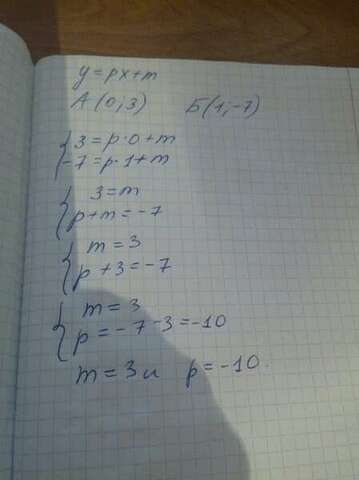 y=px+m
A(0;3) Б(1;-7)
3=p·0+m
-7=p·1+m
3=m
p+m=-7
m=3
p+3=-7
m=3
p=-7-3=-10
m=3 и p=-10.